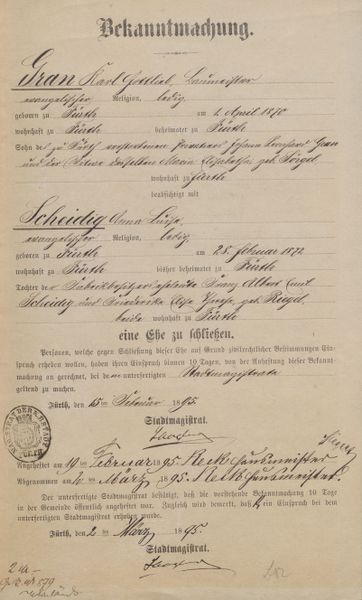 Bekanntmachung.
Gran Karl Gottlieb, Baumeister
evangelischer Religion, ledig
geboren zu Fürth am 1. April 1870
wohnhaft zu Fürth beheimatet zu Fürth
Sohn des zu Fürth verstorbenen Privatiers Johann Gran
und der Witwe desselben Maria geb.
wohnhaft zu Fürth
beabsichtigt mit
Scheidig Anna Luise,
evangelischer Religion, ledig
geboren zu Fürth am 25. Februar 1872
wohnhaft zu Fürth bisher beheimatet zu Fürth
Tochter der Fabrikbesitzerseheleute Franz Albert Emil
Scheidig und Friederika geb. Riegel,
beide wohnhaft zu Fürth
eine Ehe zu schließen.
Personen, welche gegen Schließung dieser Ehe auf Grund zivilrechtlicher Bestimmungen Ein-
spruch erheben wollen, haben ihren Einspruch binnen 10 Tagen, von der Anheftung dieser Bekannt-
machung an gerechnet, bei dem unterfertigten Stadtmagistrate
geltend zu machen.
Fürth, den 15. Februar 1895
Stadtmagistrat.
Angeheftet am 19. Februar 1895.
Abgenommen am 2. März 1895.
Der unterfertigte Stadtmagistrat bestätigt, daß die vorstehende Bekanntmachung 10 Tage
in der Gemeinde öffentlich angeheftet war. Zugleich wird bemerkt, daß ein Einspruch bei dem
unterfertigten Stadtmagistrat erhoben wurde.
Fürth, den 2. März 1895.
Stadtmagistrat.